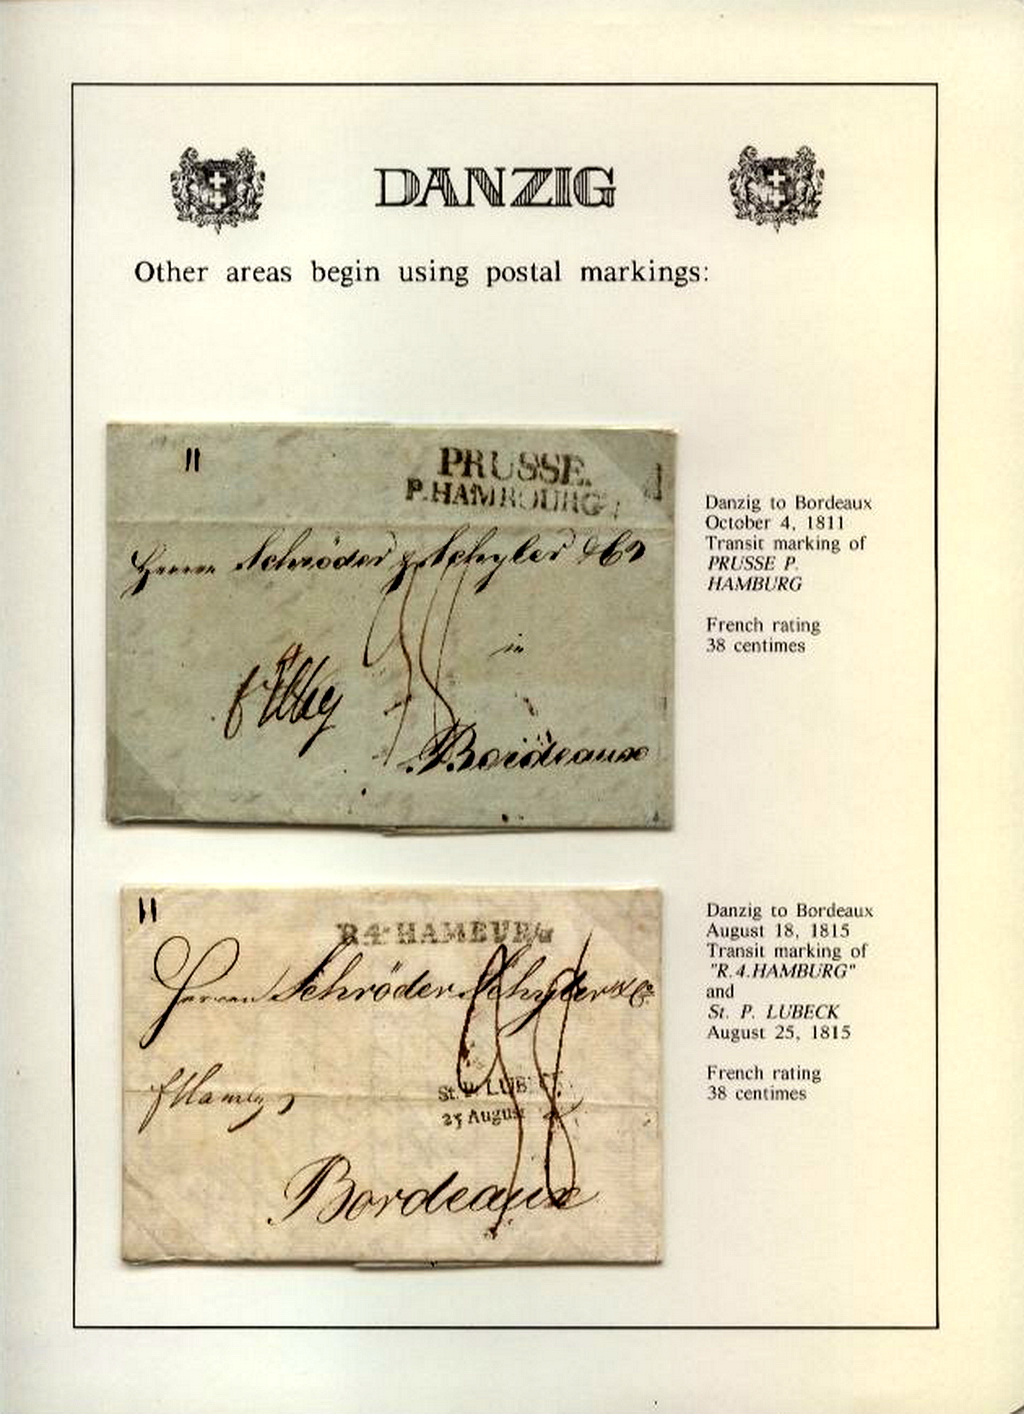 DANZIG
Other areas begin using postal markings:
II
PRUSSE.
P. HAMBOURG
Herren Schröder & Schyler & Co
38
in
Bordeaux
Danzig to Bordeaux
October 4, 1811
Transit marking of
PRUSSE P.
HAMBURG
French rating
38 centimes
II
R.4. HAMBURG
Herren Schröder Schyler & Co
38
St. P. LUBECK
25 August
Bordeaux
Danzig to Bordeaux
August 18, 1815
Transit marking of
"R.4.HAMBURG"
and
St. P. LUBECK
August 25, 1815
French rating
38 centimes